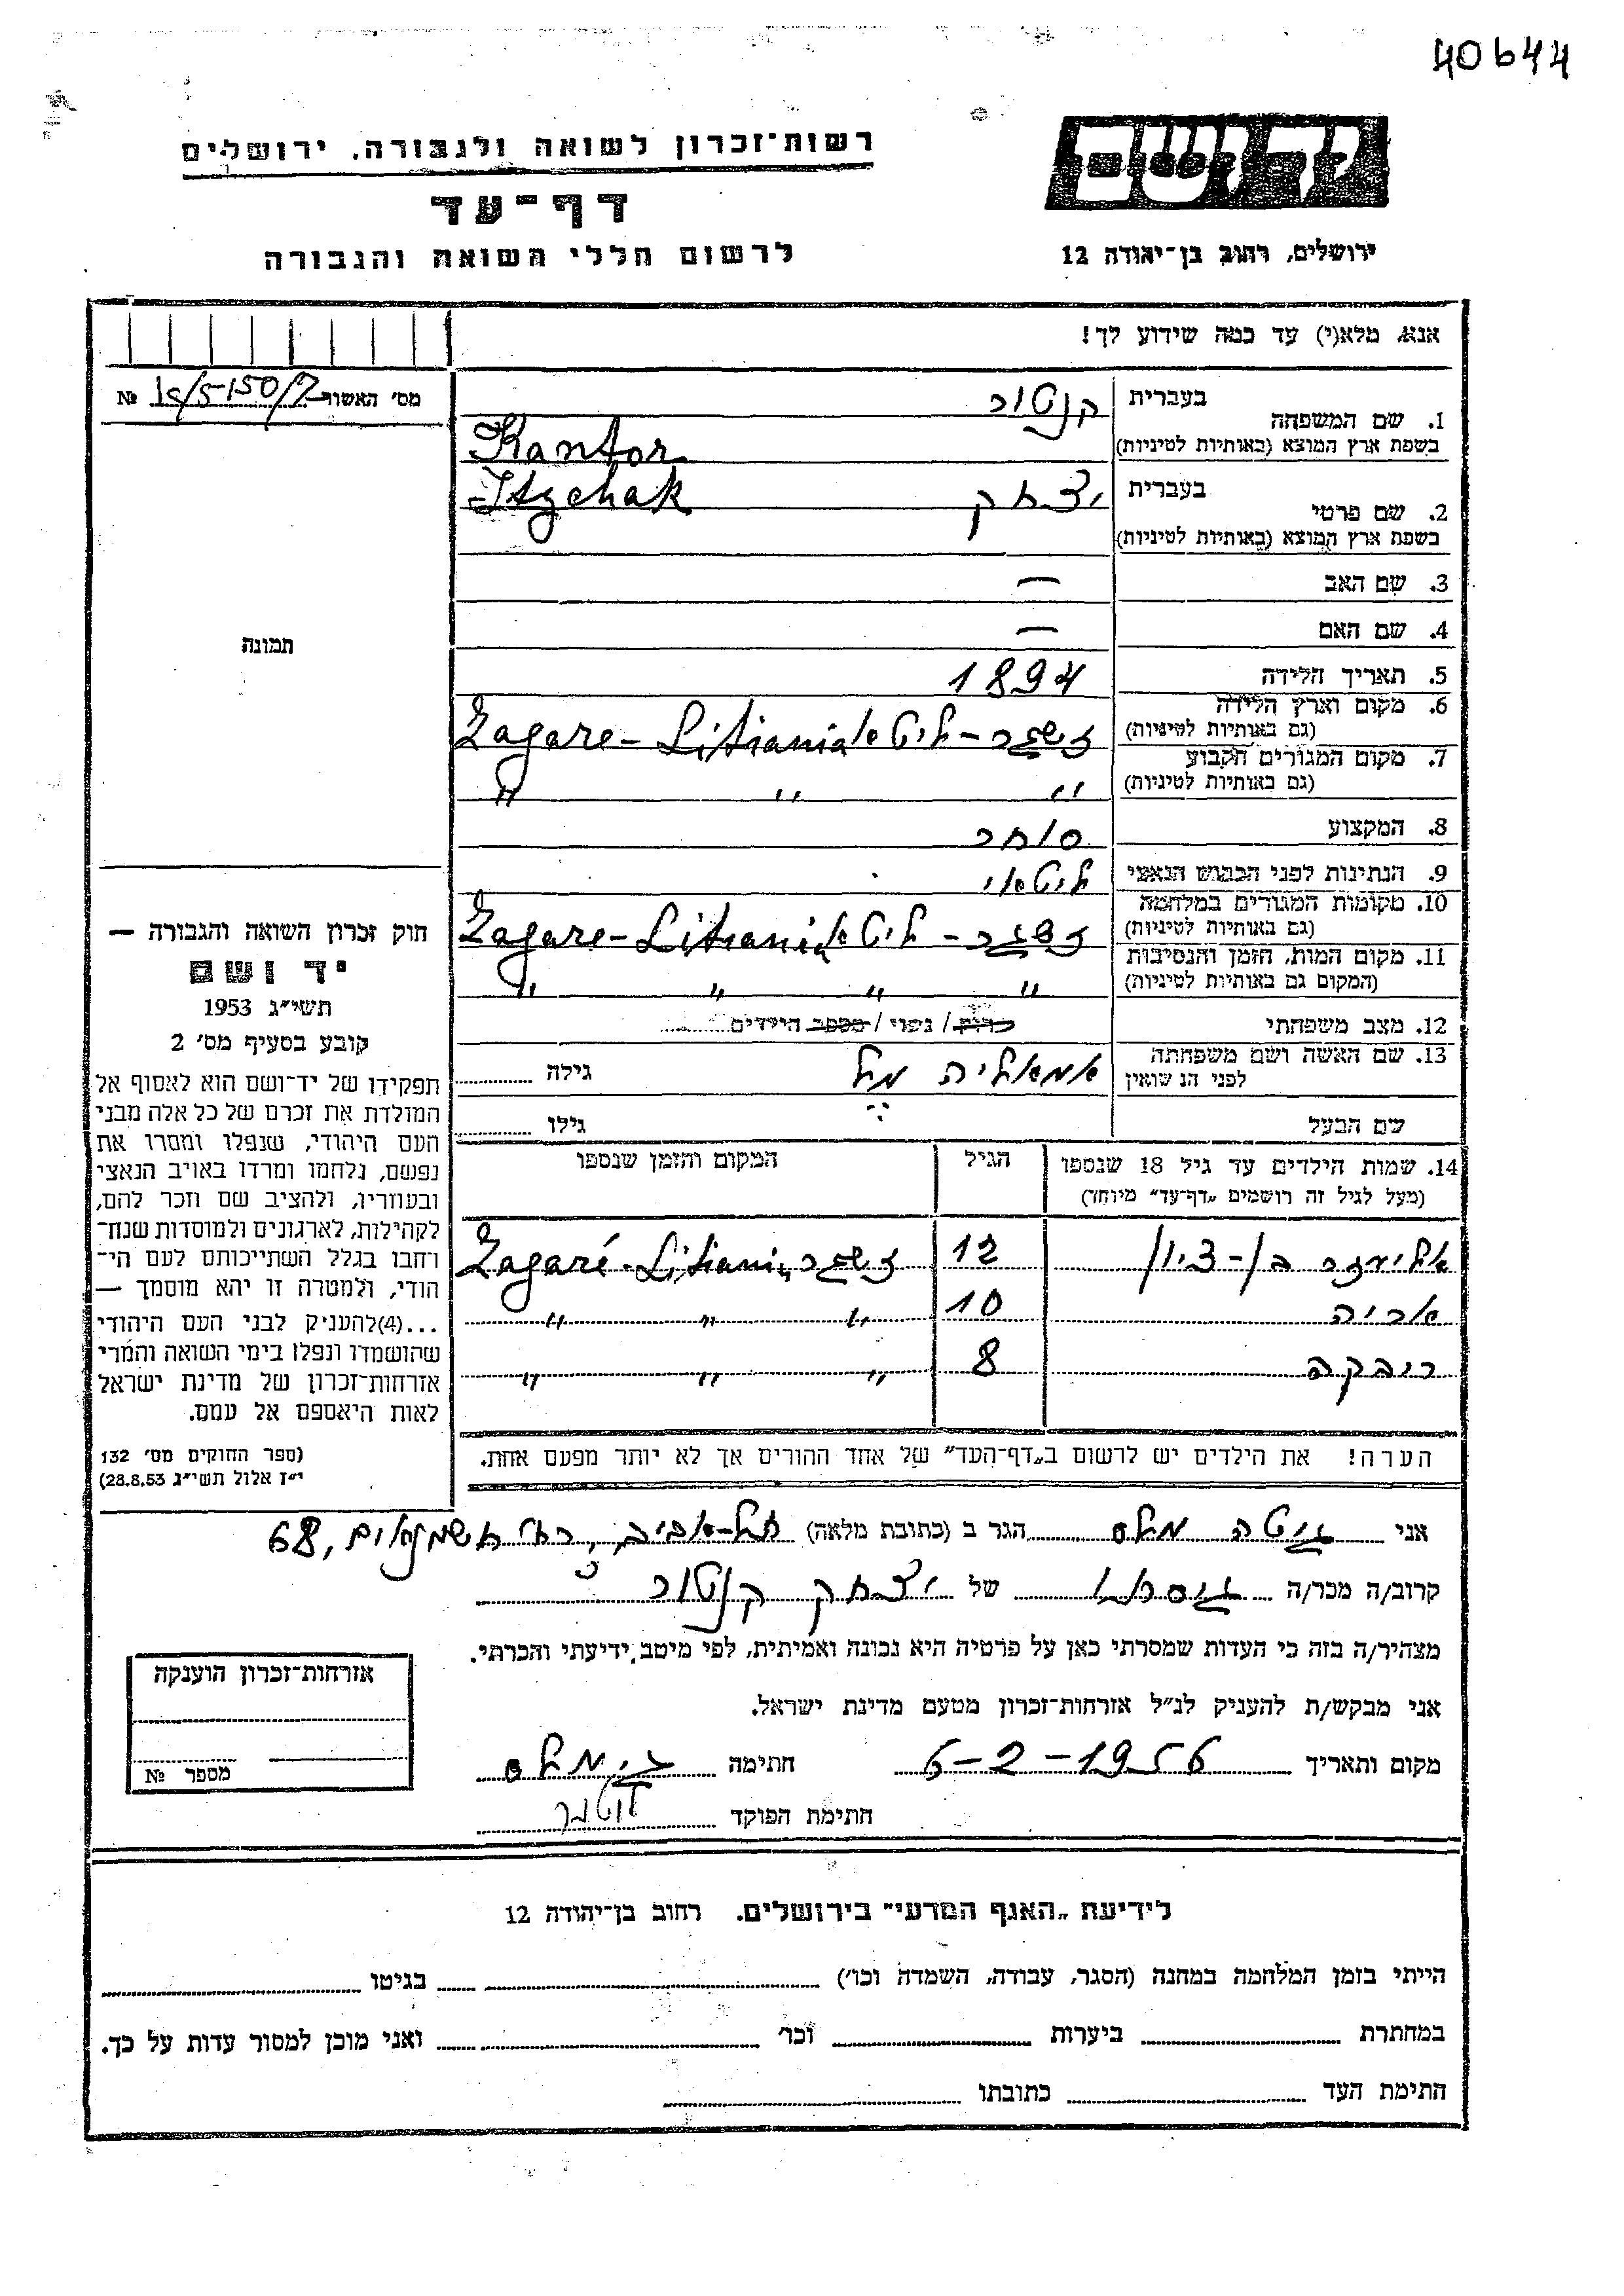 40644
רשות־זכרון לשואה ולגבורה, ירושלים
דף־עד
לרשום חללי השואה והגבורה
ירושלים, רחוב בן־יהודה 12
אנא, מלא(י) עד כמה שידוע לך!
מס׳ האשור №
1. שם המשפחה
בעברית קנטור
בשפת ארץ המוצא (באותיות לטיניות) Kantor
2. שם פרטי
בעברית יצחק
בשפת ארץ המוצא (באותיות לטיניות) Itzchak
3. שם האב —
4. שם האם —
5. תאריך הלידה 1894
6. מקום וארץ הלידה
(גם באותיות לטיניות) ז׳גר - ליטא Zagare - Litiania
7. מקום המגורים הקבוע
(גם באותיות לטיניות) " " "
8. המקצוע סוחר
9. הנתינות לפני הכבוש הנאצי ליטאי
10. מקומות המגורים במלחמה
(גם באותיות לטיניות) ליטא Zagare - Litiania
11. מקום המות, הזמן והנסיבות
(המקום גם באותיות לטיניות) " " " "
12. מצב משפחתי רווק / נשוי / מספר הילדים
13. שם האשה ושם משפחתה
לפני הנישואין אמאליה גילה
שם הבעל גילו
14. שמות הילדים עד גיל 18 שנספו
(מעל לגיל זה רושמים „דף־עד״ מיוחד)
הגיל
המקום והזמן שנספו
אליעזר בן-ציון 12 Zagaré - Litiania
אריה 10 " " "
רבקה 8 " " "
הערה! את הילדים יש לרשום ב„דף־העד״ של אחד ההורים אך לא יותר מפעם אחת.
תמונה
חוק זכרון השואה והגבורה —
יד ושם
תשי״ג 1953
קובע בסעיף מס׳ 2
תפקידו של יד־ושם הוא לאסוף אל
המולדת את זכרם של כל אלה מבני
העם היהודי, שנפלו ומסרו את
נפשם, נלחמו ומרדו באויב הנאצי
ובעוזריו, ולהציב שם וזכר להם,
לקהילות, לארגונים ולמוסדות שנח־
רחבו בגלל השתייכותם לעם הי־
הודי, ולמטרה זו יהא מוסמך —
...(4)להעניק לבני העם היהודי
שהושמדו ונפלו בימי השואה והמרי
אזרחות־זכרון של מדינת ישראל
לאות היאספם אל עמם.
(ספר החוקים מס׳ 132
י״ז אלול תשי״ג 28.8.53)
אני גיטה מלס הגר ב (כתובת מלאה) תל-אביב, 68
קרוב/ה מכר/ה גיסתו של יצחק קנטור
מצהיר/ה בזה כי העדות שמסרתי כאן על פרטיה היא נכונה ואמיתית, לפי מיטב ידיעתי והכרתי.
אני מבקש/ת להעניק לנ״ל אזרחות־זכרון מטעם מדינת ישראל.
מקום ותאריך 6-2-1956 חתימה ג. מלס
חתימת הפוקד
אזרחות־זכרון הוענקה
מספר №
לידיעת „האגף המדעי״ בירושלים. רחוב בן־יהודה 12
הייתי בזמן המלחמה במחנה (הסגר, עבודה, השמדה וכו׳) בגיטו
במחתרת ביערות וכו׳ ואני מוכן למסור עדות על כך.
חתימת העד כתובתו